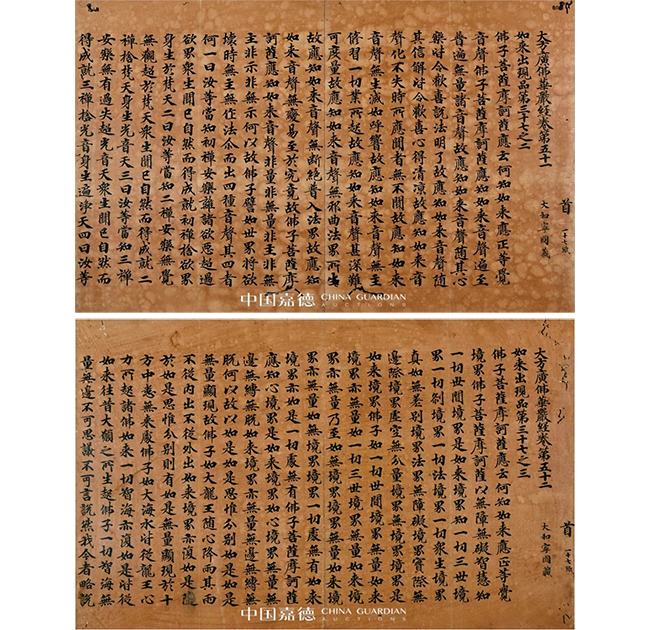 大方廣佛華嚴經卷第五十一
首
大和寧國藏
如來出現品第三十七之二
佛子菩薩摩訶薩應云何知如來應正等覺
音聲佛子菩薩摩訶薩應知如來音聲遍至
普遍無量諸音聲故應知如來音聲隨其心
樂皆令歡喜說法明了故應知如來音聲隨
其信解皆令歡喜心得清凉故應知如來音
聲化不失時所應聞者無不聞故應知如來
音聲無生滅如呼響故應知如來音聲無主
修習一切業所起故應知如來音聲甚深難
可度量故應知如來音聲無邪曲法界所生
故應知如來音聲無斷絕普入法界故應知
如來音聲無變易至於究竟故佛子菩薩摩
訶薩應知如來音聲非量非無量非主非無
主非示非無示何以故佛子譬如世界將欲
壞時無主無作法尒而出四種音聲其四者
何一曰汝等當知初禪安樂離諸欲惡超過
欲界眾生聞已自然而得成就初禪捨欲界
身生於梵天二曰汝等當知二禪安樂無覺
無觀超於梵天眾生聞已自然而得成就二
禪捨梵天身生光音天三曰汝等當知三禪
安樂無有過失超光音天眾生聞已自然而
得成就三禪捨光音身生遍淨天四曰汝等
中国嘉德 CHINA GUARDIAN AUCTIONS
大方廣佛華嚴經卷第五十二
首
大和寧國藏
如來出現品第三十七之三
佛子菩薩摩訶薩應云何知如來應正等覺
境界佛子菩薩摩訶薩以無障無礙智慧知
一切世間境界是如來境界知一切三世境
界一切剎境界一切法境界一切眾生境界
真如無差別境界法界無障礙境界實際無
邊際境界虛空無分量境界無境界境界是
如來境界佛子如一切世間境界無量如來
境界亦無量如一切三世境界無量如來境
界亦無量乃至如無境界境界無量如來境
界亦無量如無境界境界一切處無有如來
境界亦如是一切處無有佛子菩薩摩訶薩
應知心境界是如來境界如心境界無量無
邊無縛無脫如來境界亦無量無邊無縛無
脫何以故以如是如是思惟分別如是如是
無量顯現故佛子如大龍王隨心降雨其雨
不從內出不從外出如來境界亦復如是隨
於如是思惟分別則有如是無量顯現於十
方中悉無來處佛子如大海水皆從龍王心
力所起諸佛如來一切智海亦復如是皆從
如來往昔大願之所生起佛子一切智海無
量無邊不可思議不可言說然我今者略說
中国嘉德 CHINA GUARDIAN AUCTIONS